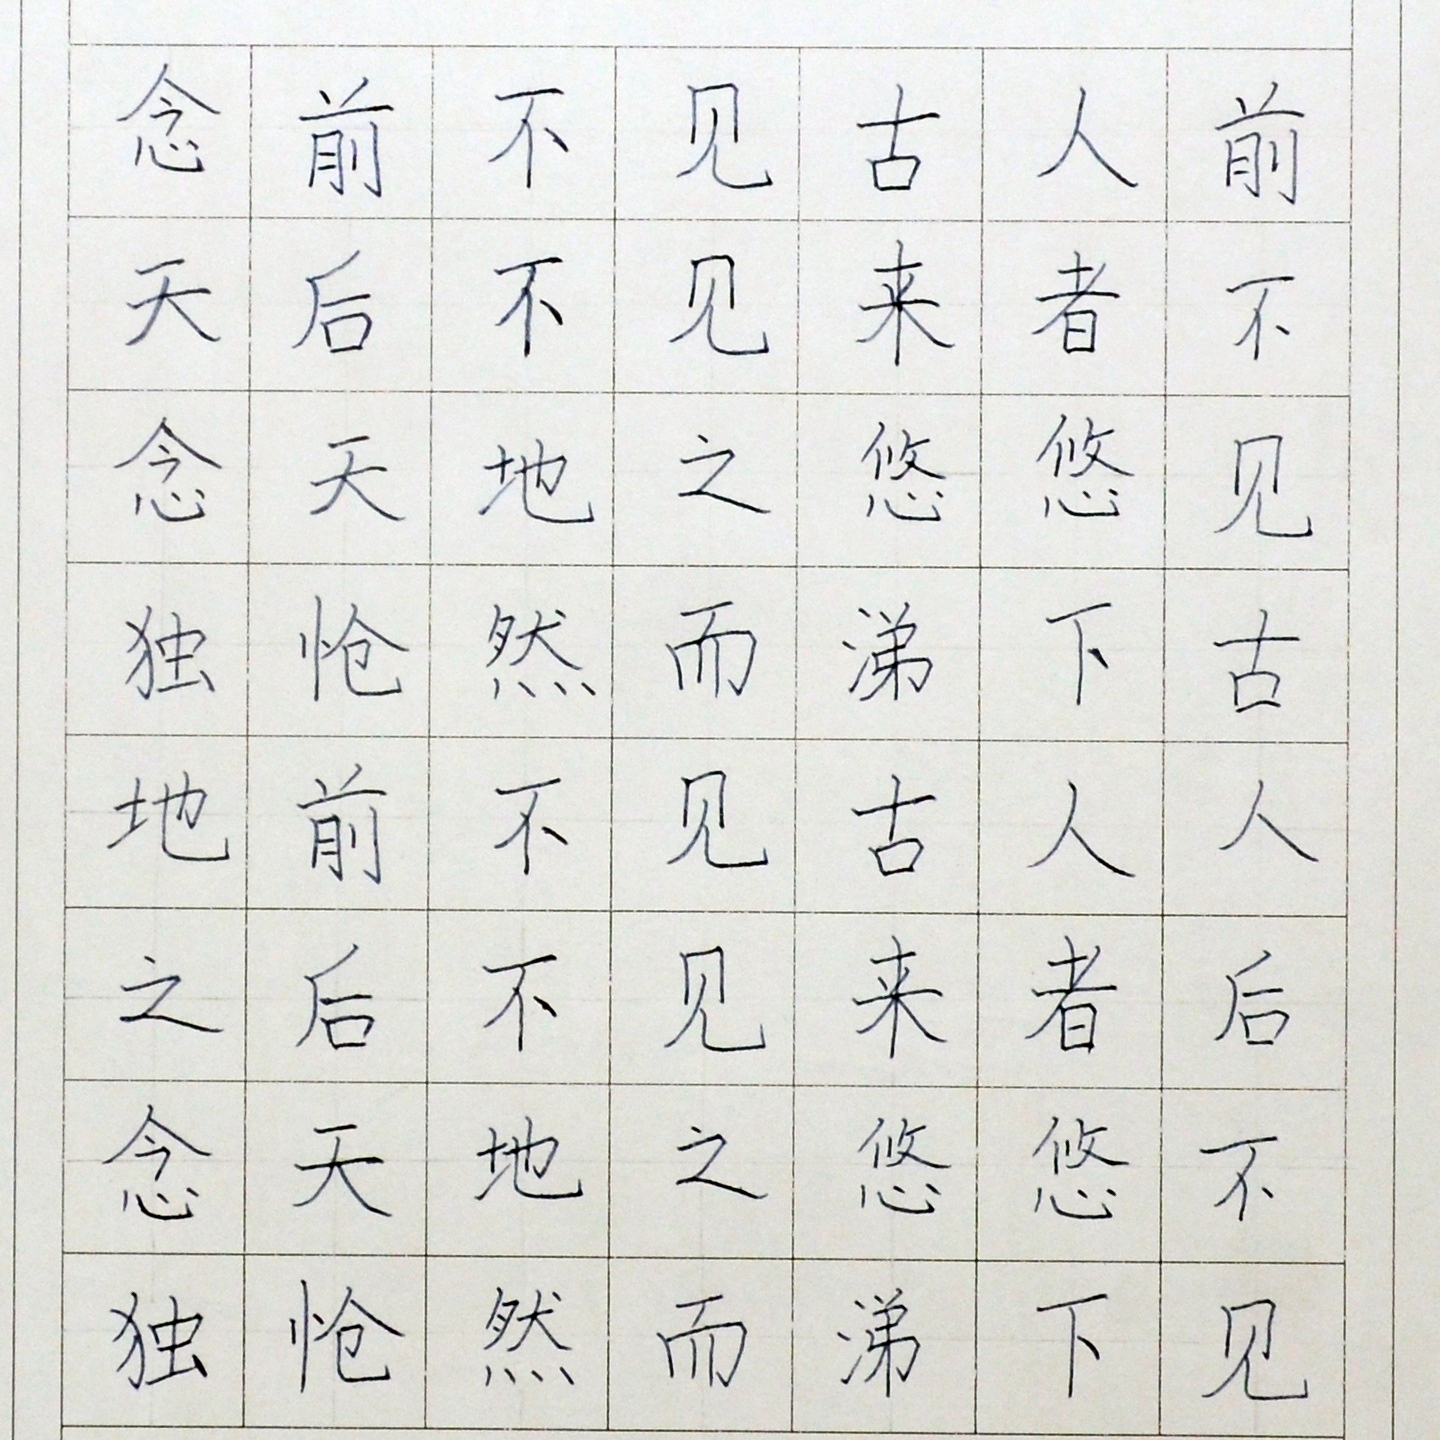 念前不见古人前
天后不见来者不
念天地之悠悠见
独怆然而涕下古
地前不见古人人
之后不见来者后
念天地之悠悠不
独怆然而涕下见